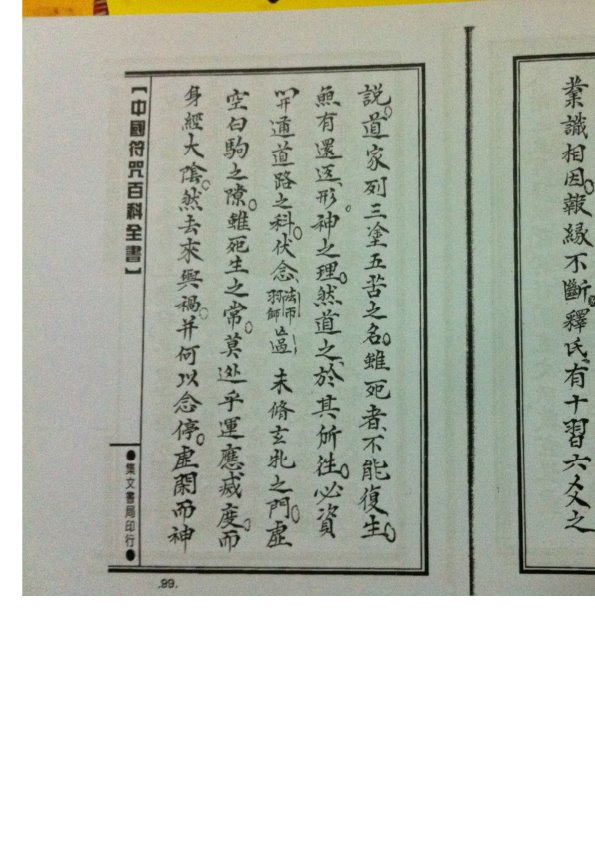 業識相因報緣不斷釋氏有十習六交之
說道家列三塗五苦之名雖死者不能復生
無有還返形神之理然道之於其所往必資
開通道路之科伏念法師羽師亡過未脩玄牝之門虛
空白駒之隙雖死生之常莫逃乎運應感度而
身經大陰然去來與禍并何以念停虛閑而神
【中國符咒百科全書】
●集文書局印行●
.99.